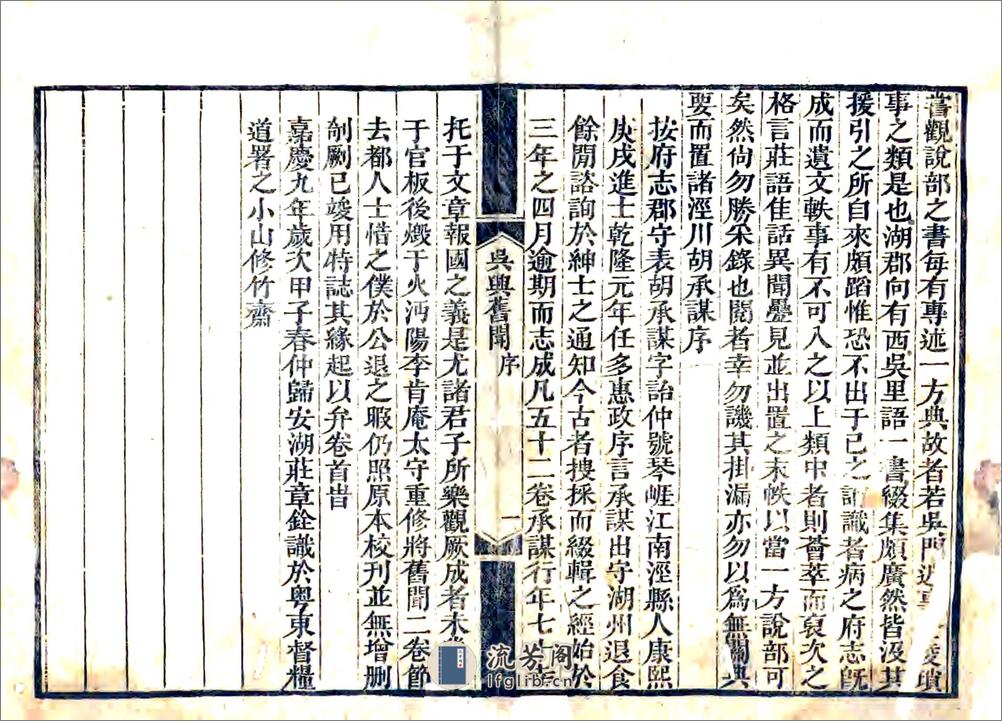 嘗觀說部之書每有專述一方典故者若吳門
事之類是也湖郡向有西吳里語一書綴集頗廣然皆沒其
援引之所自來頗蹈惟恐不出于己之 識者病之府志旣
成而遺文軼事有不可入之以上類中者則薈萃而裒次之
格言莊語佳話異聞疊見並出置之末帙以當一方說部可
矣然尙勿勝采錄也閱者幸勿譏其掛漏亦勿以爲無關典
要而置諸涇川胡承謀序
按府志郡守表胡承謀字詒仲號琴崕江南涇縣人康熙
庚戌進士乾隆元年任多惠政序言承謀出守湖州退食
餘閒諮詢於紳士之通知今古者搜採而綴輯之經始於
三年之四月逾期而志成凡五十二卷承謀行年七
吳興舊聞
序
一
托于文章報國之義是尤諸君子所樂觀厥成者未
于官板後燬于火沔陽李肯庵太守重修將舊聞二卷節
去都人士惜之僕於公退之暇仍照原本校刊並無增删
剞劂已竣用特誌其緣起以弁卷首旹
嘉慶九年歲次甲子春仲歸安湖莊章銓識於粤東督糧
道署之小山修竹齋
流芳閣
lfglib.cn